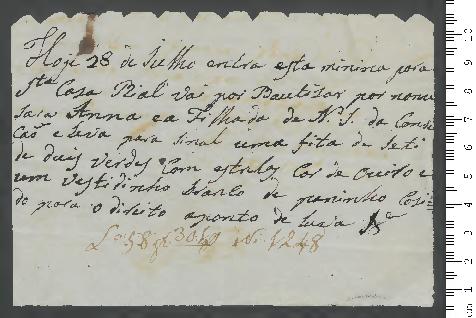 Hoje 28 de Julho entra esta minina para
Sta Caza Rial vai por Bautizar por nome
sará Anna e a Filhada de N. S. da Conse
cão e leva para sinal uma fita de seti
de duis verdes Com estrelas Cor de Ouiro e
um vestidinho branco de paninho Cosi=
do para o direito aponto de luva
Lo 58 fl 304 No 1248